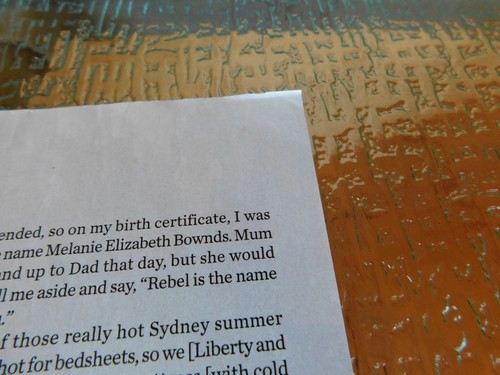 ended, so on my birth certificate, I was
name Melanie Elizabeth Bownds. Mum
and up to Dad that day, but she would
ll me aside and say, “Rebel is the name
.”
f those really hot Sydney summer
hot for bedsheets, so we [Liberty and
[with cold